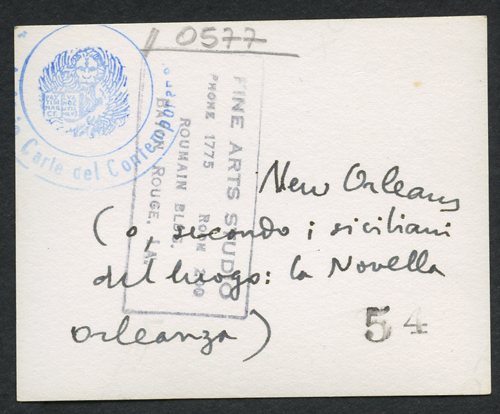 0577
Carte del Contemporaneo
FINE ARTS STUDIO
ROOM 200
PHONE 1775
ROUMAIN BLDG.
BATON ROUGE, LA.
New Orleans
( o, secondo i siciliani
del luogo: la Novella
Orleanza )
54